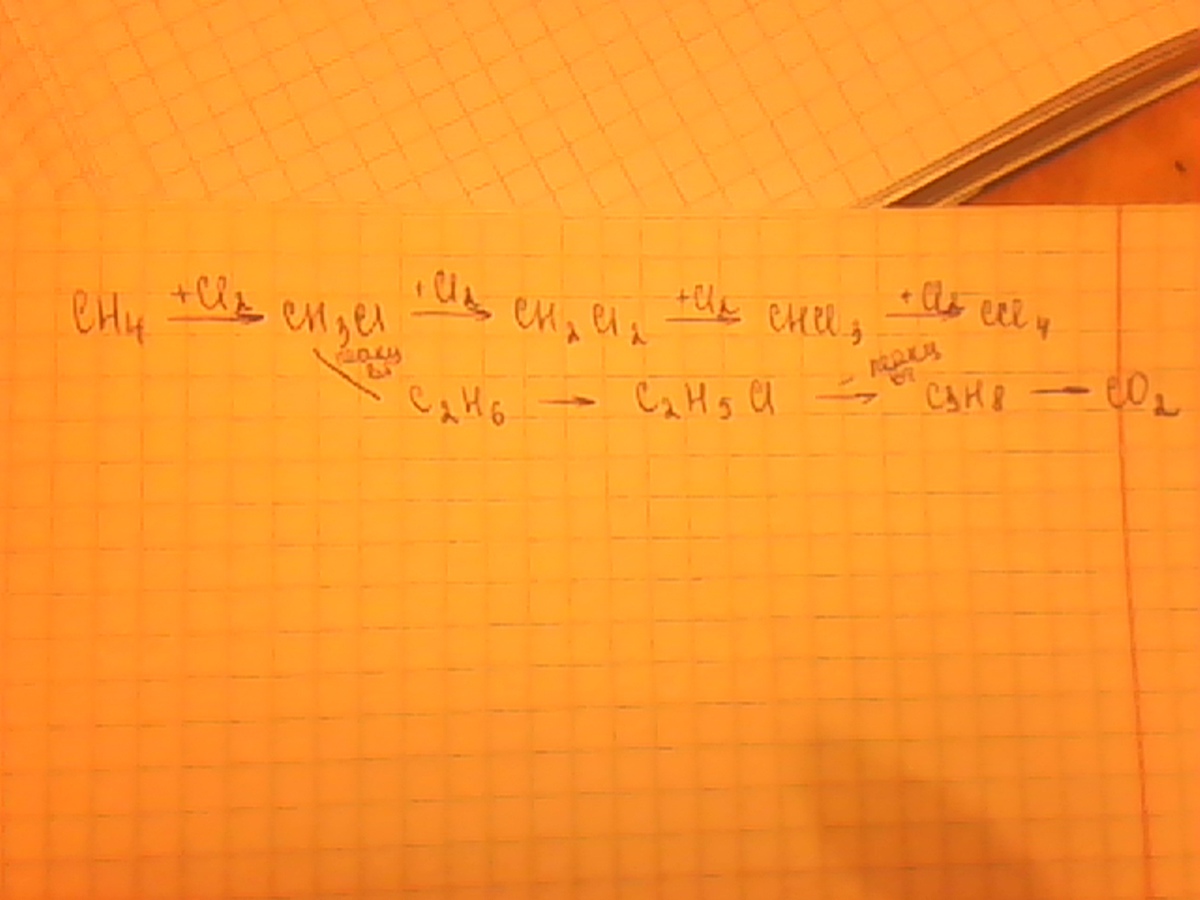 CH₄ +Cl₂ → CH₃Cl +Cl₂ → CH₂Cl₂ +Cl₂ → CHCl₃ +Cl₂ → CCl₄
C₂H₆ → C₂H₅Cl → C₃H₈ → CO₂